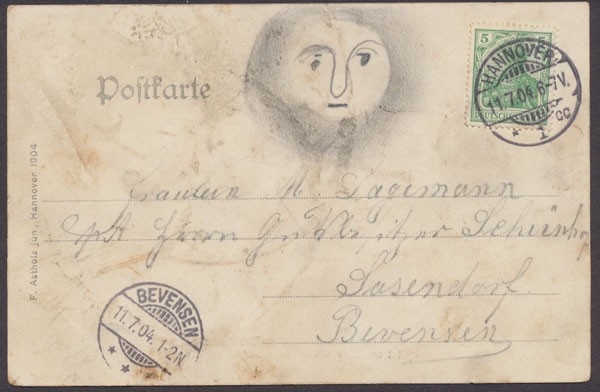 Postkarte
5
HANNOVER
11.7.04.6-7V.
* 1 cc
Fräulein M. Tagemann
Herrn Gutsbesitzer
Sasendorf
Bevensen
BEVENSEN
11.7.04.1-2N.
* *
F. Astholz jun., Hannover 1904